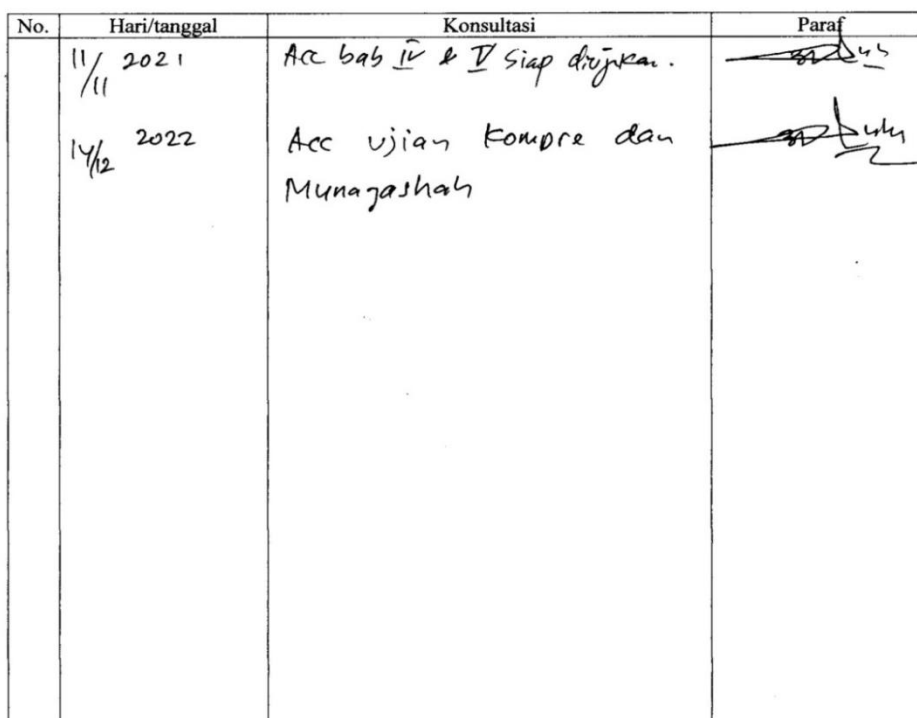 No. Hari/tanggal Konsultasi Paraf
11/11 2021 Acc bab IV & V siap diujikan.
14/12 2022 Acc ujian kompre dan
Munaqashah